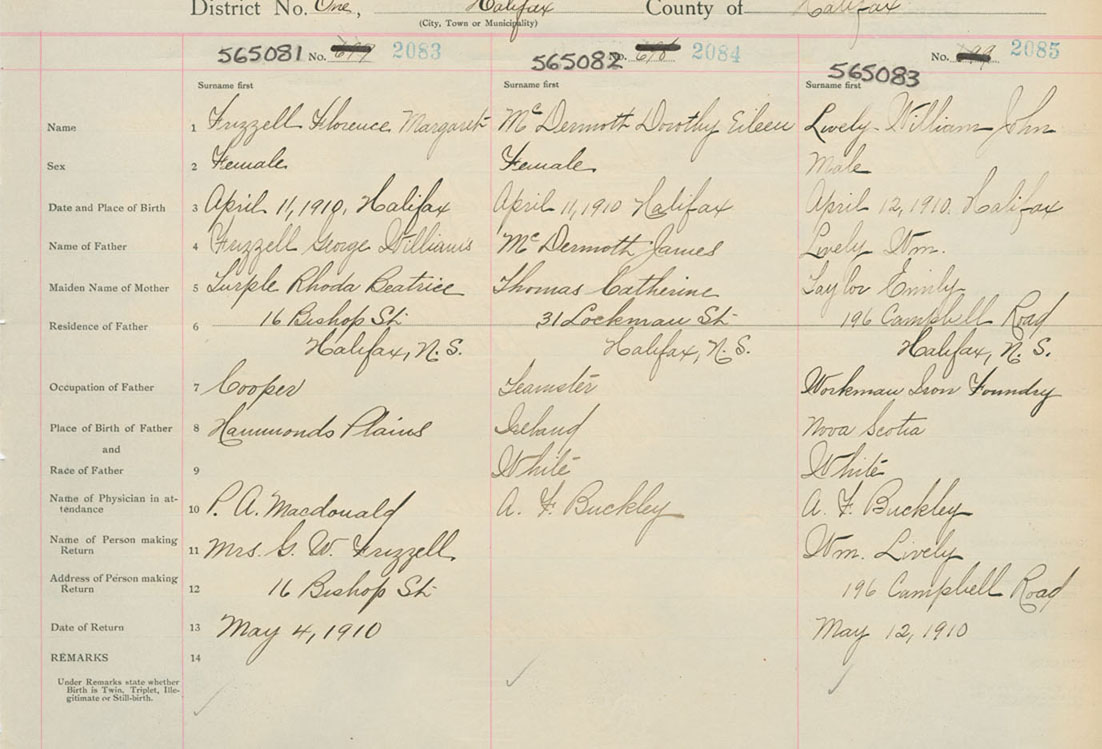 District No. One, Halifax County of Halifax
(City, Town or Municipality)
565081 No. 2083 565082 No. 2084 565083 No. 2085
Surname first Surname first Surname first
Name 1 Frizzell Florence Margaret McDermott Dorothy Eileen Lively William John
Sex 2 Female Female Male
Date and Place of Birth 3 April 11, 1910, Halifax April 11, 1910 Halifax April 12, 1910, Halifax
Name of Father 4 Frizzell George Williams McDermott James Lively Wm.
Maiden Name of Mother 5 Rhoda Beatrice Thomas Catherine Taylor Emily
Residence of Father 6 16 Bishop St 31 Lockman St 196 Campbell Road
Halifax, N.S. Halifax, N.S. Halifax, N.S.
Occupation of Father 7 Cooper Teamster Workman Iron Foundry
Place of Birth of Father 8 Hammonds Plains Ireland Nova Scotia
and
Race of Father 9 White White
Name of Physician in at-
tendance 10 P. A. Macdonald A. F. Buckley A. F. Buckley
Name of Person making
Return 11 Mrs. G. W. Frizzell Wm. Lively
Address of Person making
Return 12 16 Bishop St 196 Campbell Road
Date of Return 13 May 4, 1910 May 12, 1910
REMARKS 14
Under Remarks state whether
Birth is Twin, Triplet, Ille-
gitimate or Still-birth.